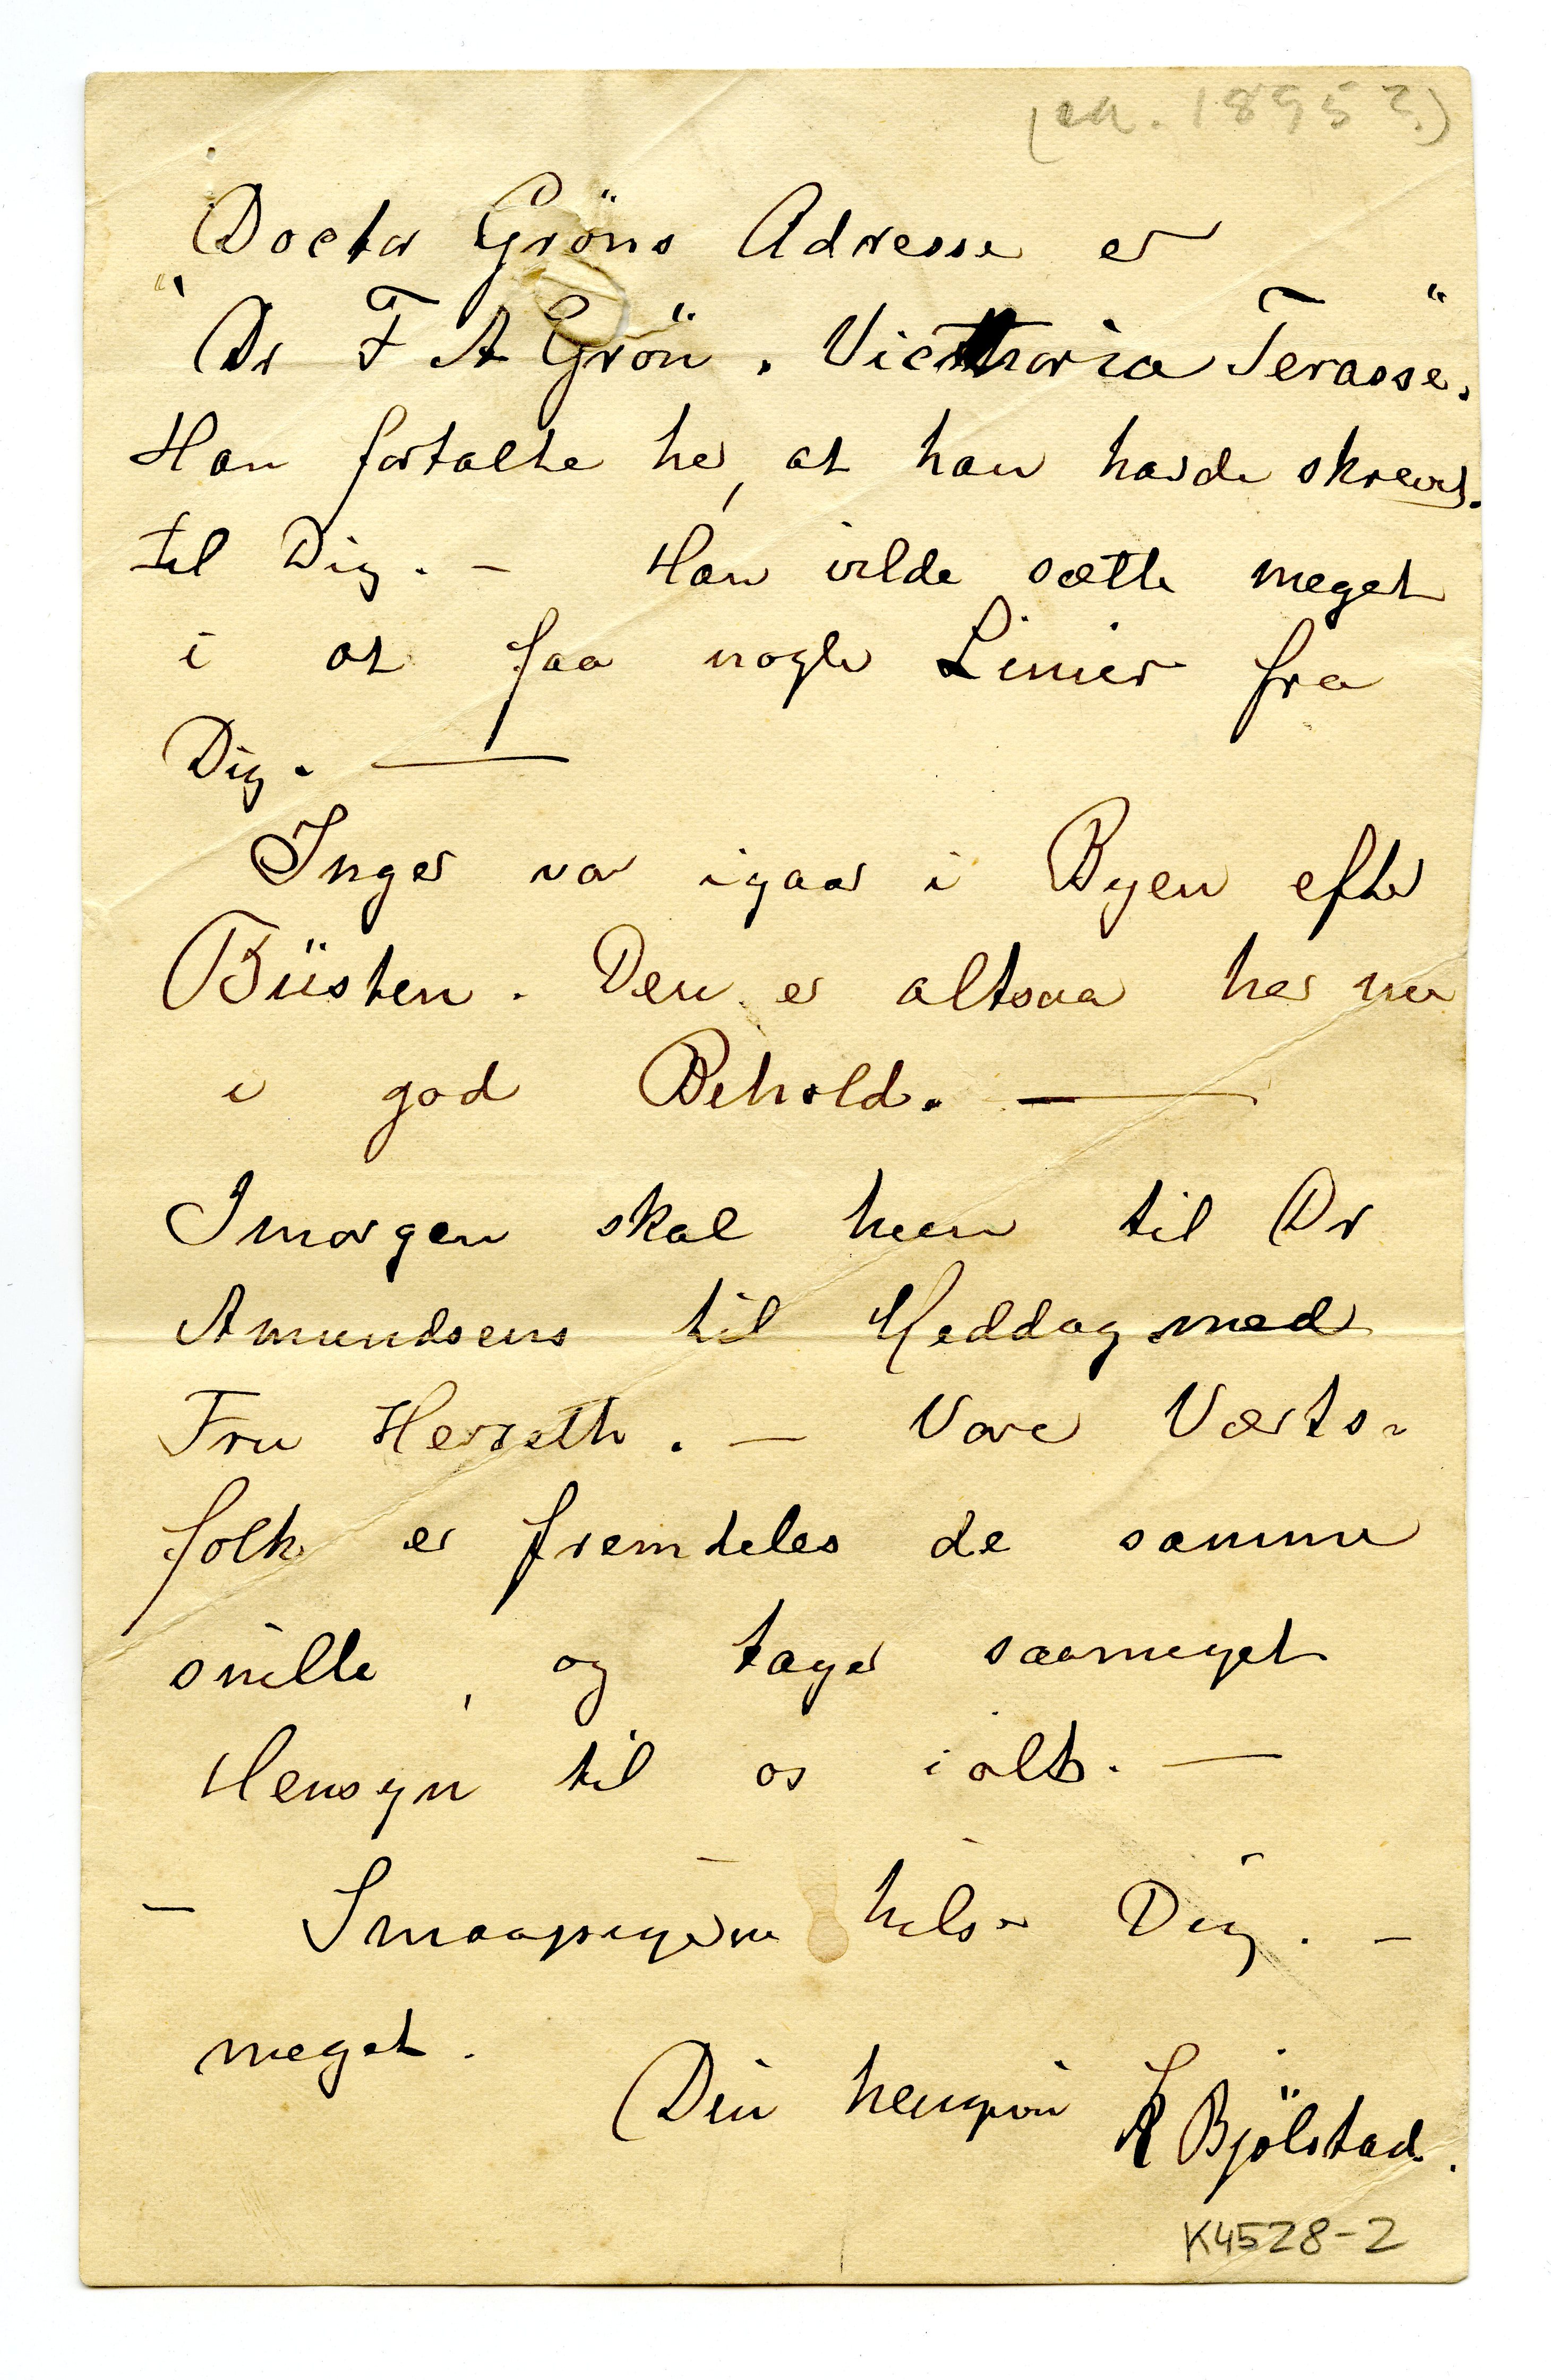 (ca. 1895?)
Doctor Gröns Adresse er
"Dr F A Grön. Victhoria Terasse."
Han fortalte her, at han havde skrevet.
til Dig. – Han vilde sætte meget
i at faa nogle Linier fra
Dig. —
Inger var igaar i Byen efter
Büsten. Den er altsaa her nu
i god Behold. —
Imorgen skal hun til Dr
Amundsens til Meddag med
Fru Herseth. – Vore Værts-
folk er fremdeles de samme
snille, og tager saameget
Hensyn til os i alt. —
– Smaapigerne hilser Dig. –
meget.
Din hengivne K Bjölstad.
K4528-2